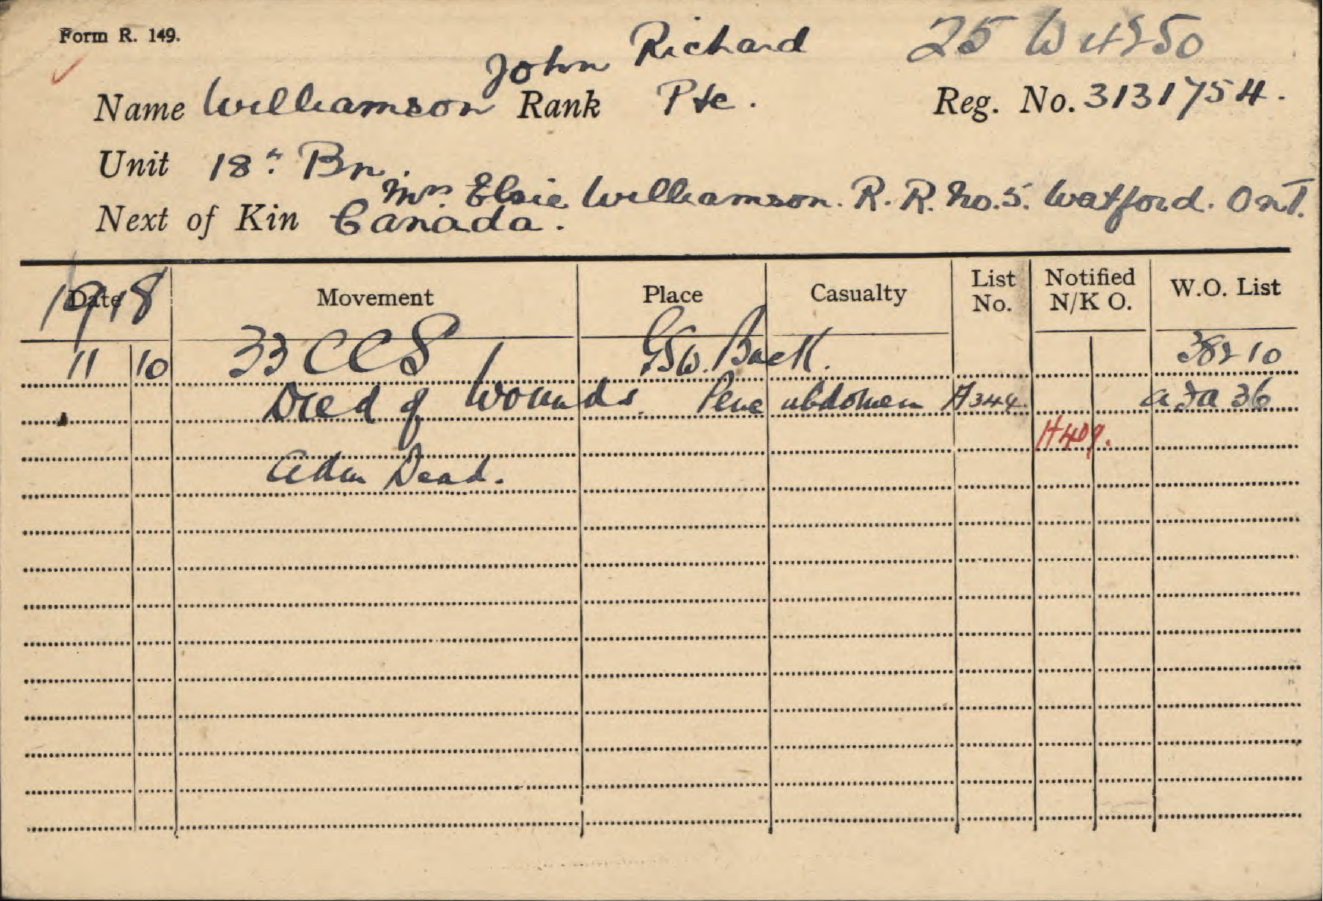 Form R. 149.
John Richard
Name Williamson Rank Pte. Reg. No. 3131754.
Unit 18th Bn.
Mrs Elsie Williamson. R. R. No. 5. Watford. Ont.
Next of Kin Canada.
1918
Date Movement Place Casualty List No. Notified N/K O. W.O. List
11 10 33 CCS GSW. Back.
Died of Wounds. Pene abdomen A344
H409.
Dead.